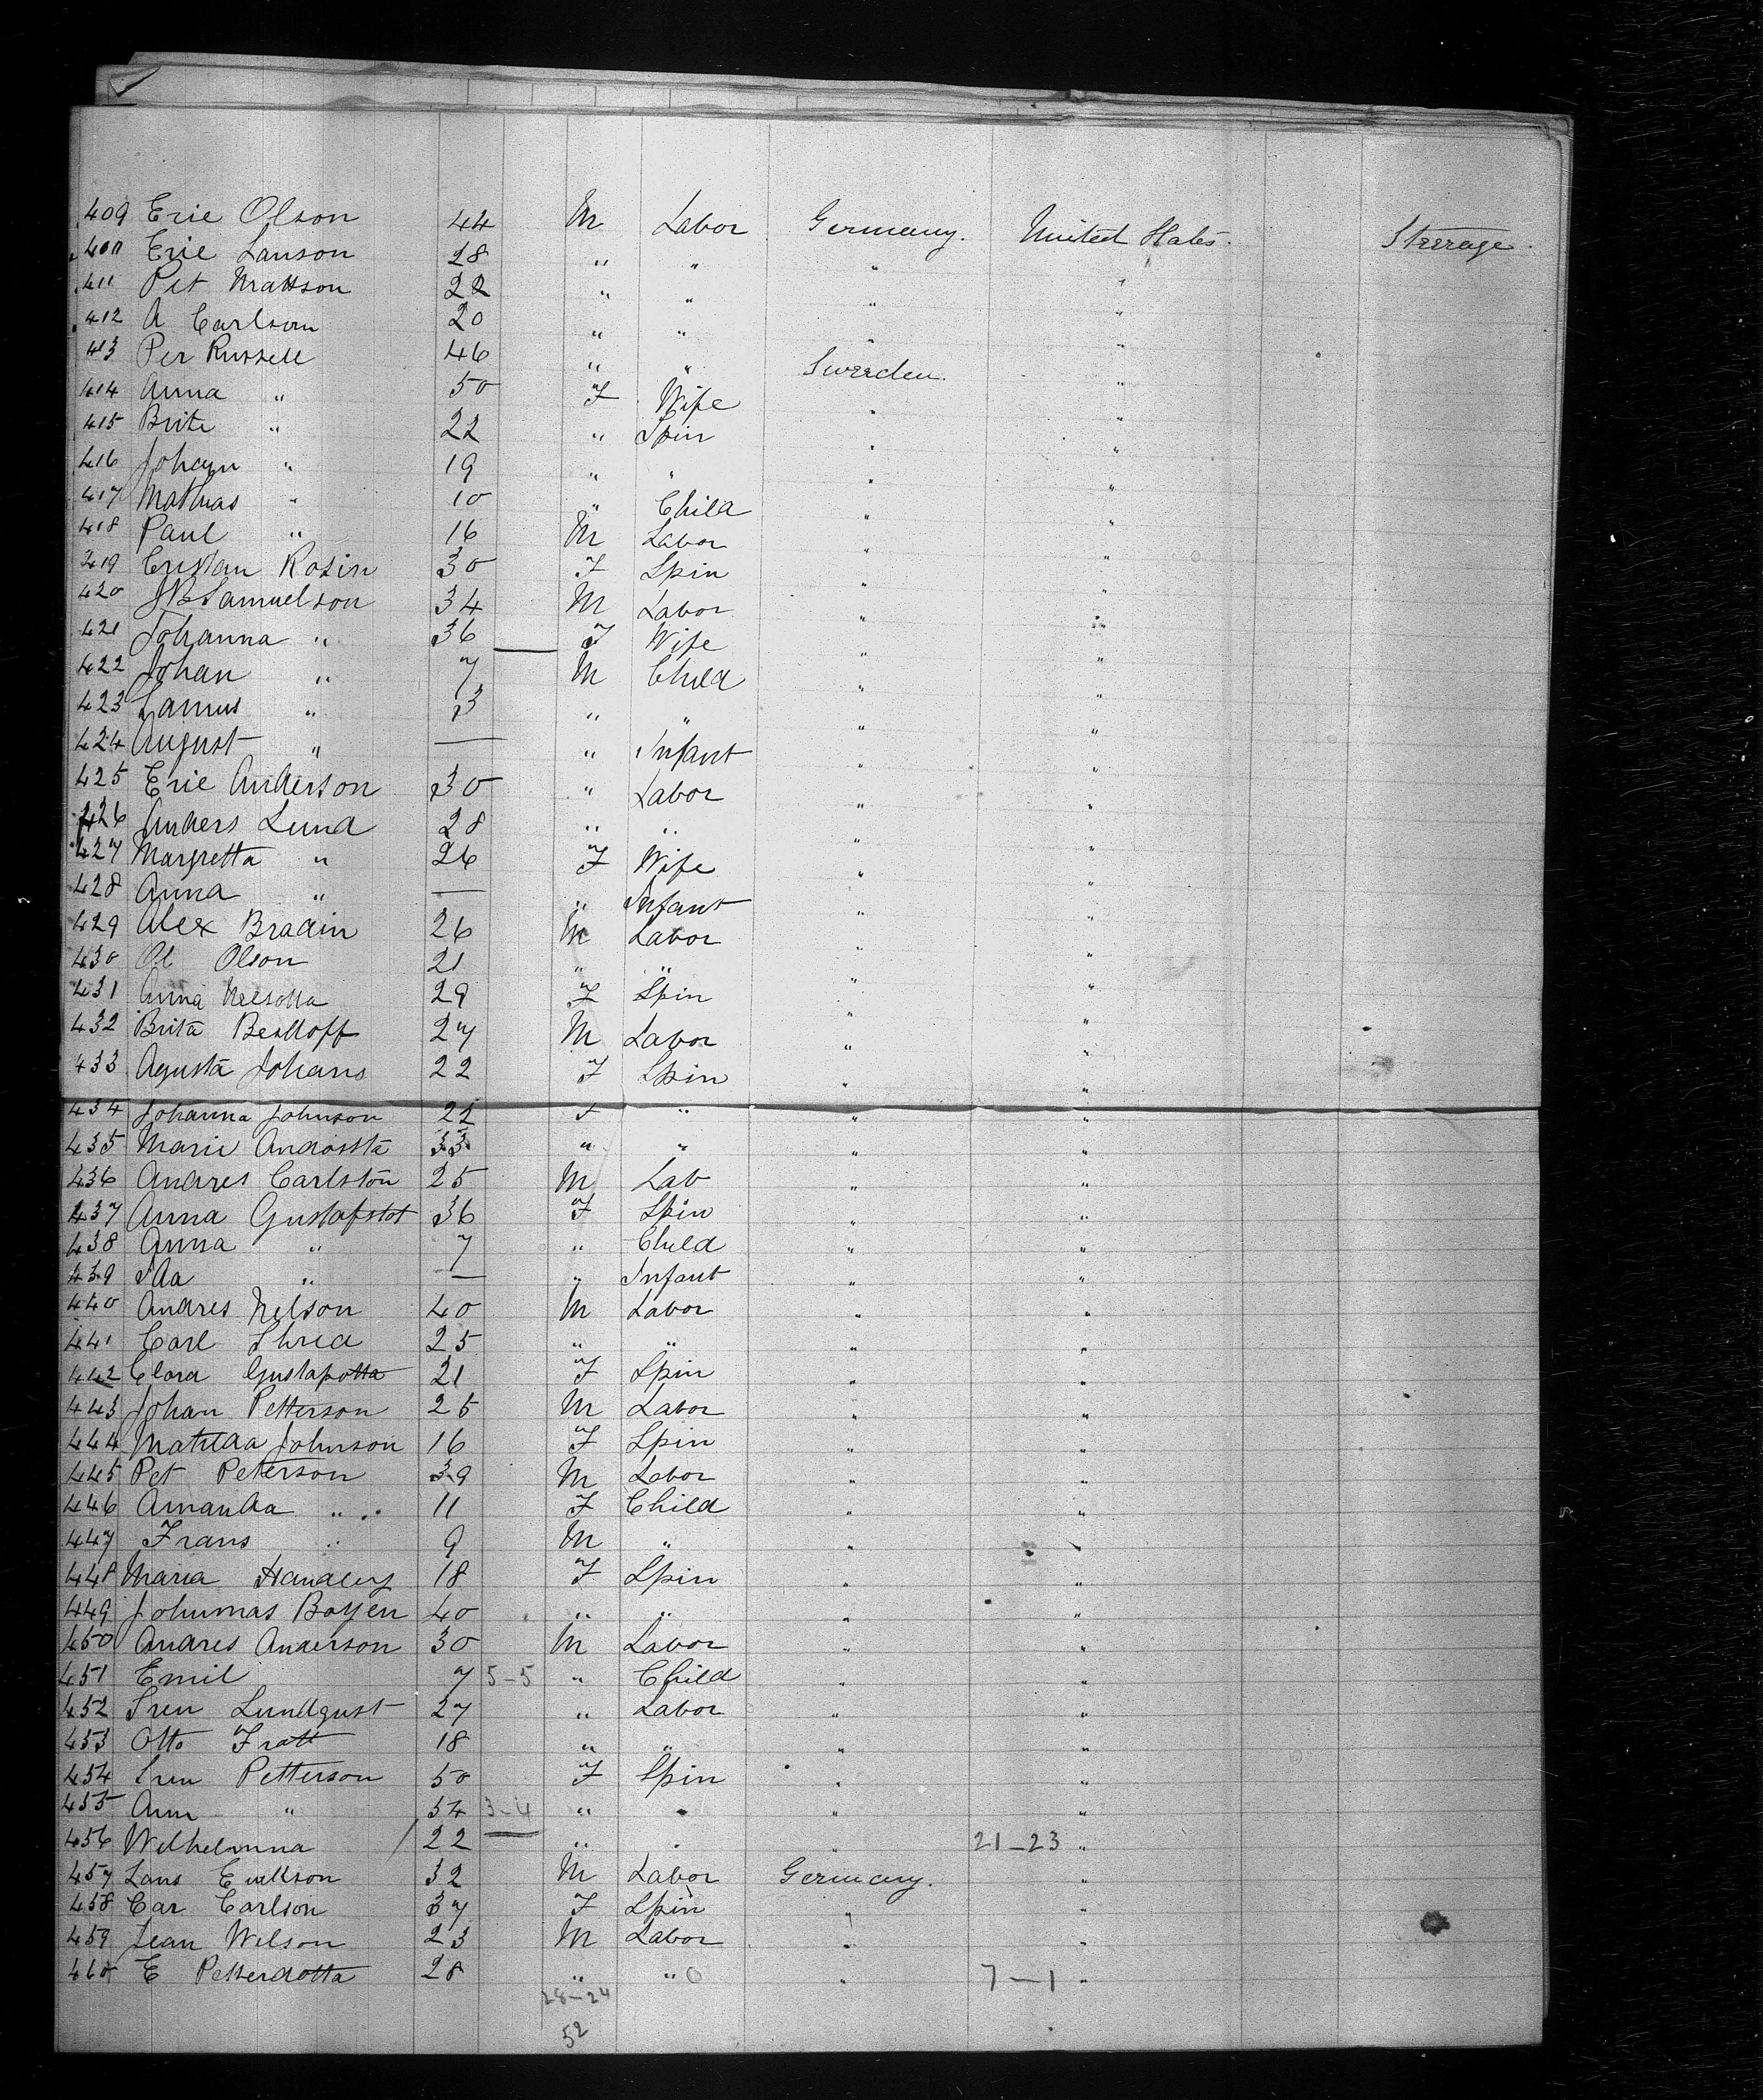 409 Eric Olson 44 M Labor Germany. United States. Steerage.
410 Eric Lanson 28 " " " "
411 Pet Mattson 22 " " " "
412 A Carlson 20 " " " "
413 Per Russell 46 " " Sweeden. "
414 Anna " 50 F Wife " "
415 Brite " 22 " Spin " "
416 Johan " 19 " " " "
417 Mathias " 10 " Child " "
418 Paul " 16 M Labor " "
419 Cristan Rosin 30 F Spin " "
420 JB Samuelson 34 M Labor " "
421 Johanna " 36 F Wife " "
422 Johan " 7 M Child " "
423 " 3 " " " "
424 August " — " Infant " "
425 Eric Anderson 30 " Labor " "
426 Anders Lund 28 " " " "
427 Margretta " 26 F Wife " "
428 Anna " — " Infant " "
429 Alex Bradin 26 M Labor " "
430 Ol Olson 21 " " " "
431 Anna Nelsotta 29 F Spin " "
432 Brita 27 M Labor " "
433 Agusta Johans 22 F Spin " "
434 Johanna Johnson 22 F " " "
435 Marie 33 " " " "
436 Andres Carlston 25 M Lab " "
437 Anna Gustafstot 36 F Spin " "
438 Anna " 7 " Child " "
439 Ida " — " Infant " "
440 Andres Nelson 40 M Labor " "
441 Carl 25 " " " "
442 Clara Gustafotta 21 F Spin " "
443 Johan Petterson 25 M Labor " "
444 Matilda Johnson 16 F Spin " "
445 Pet Peterson 39 M Labor " "
446 Amanda " 11 F Child " "
447 Frans " 9 M " " "
448 Maria Handley 18 F Spin " "
449 Boyen 40 " " " "
450 Andres Anderson 30 M Labor " "
451 Emil 7 5-5 " Child " "
452 Sven Lundqust 27 " Labor " "
453 Otto Fratt 18 " " " "
454 Petterson 50 F Spin " "
455 Ann " 54 3-4 " " " "
456 Wilhelmina 22 " " " 21-23 "
457 Lans 32 M Labor Germany. "
458 Car Carlson 37 F Spin " "
459 Jean Wilson 23 M Labor " "
460 E Petterdotta 28 " " " 7-1 "
28-24
52